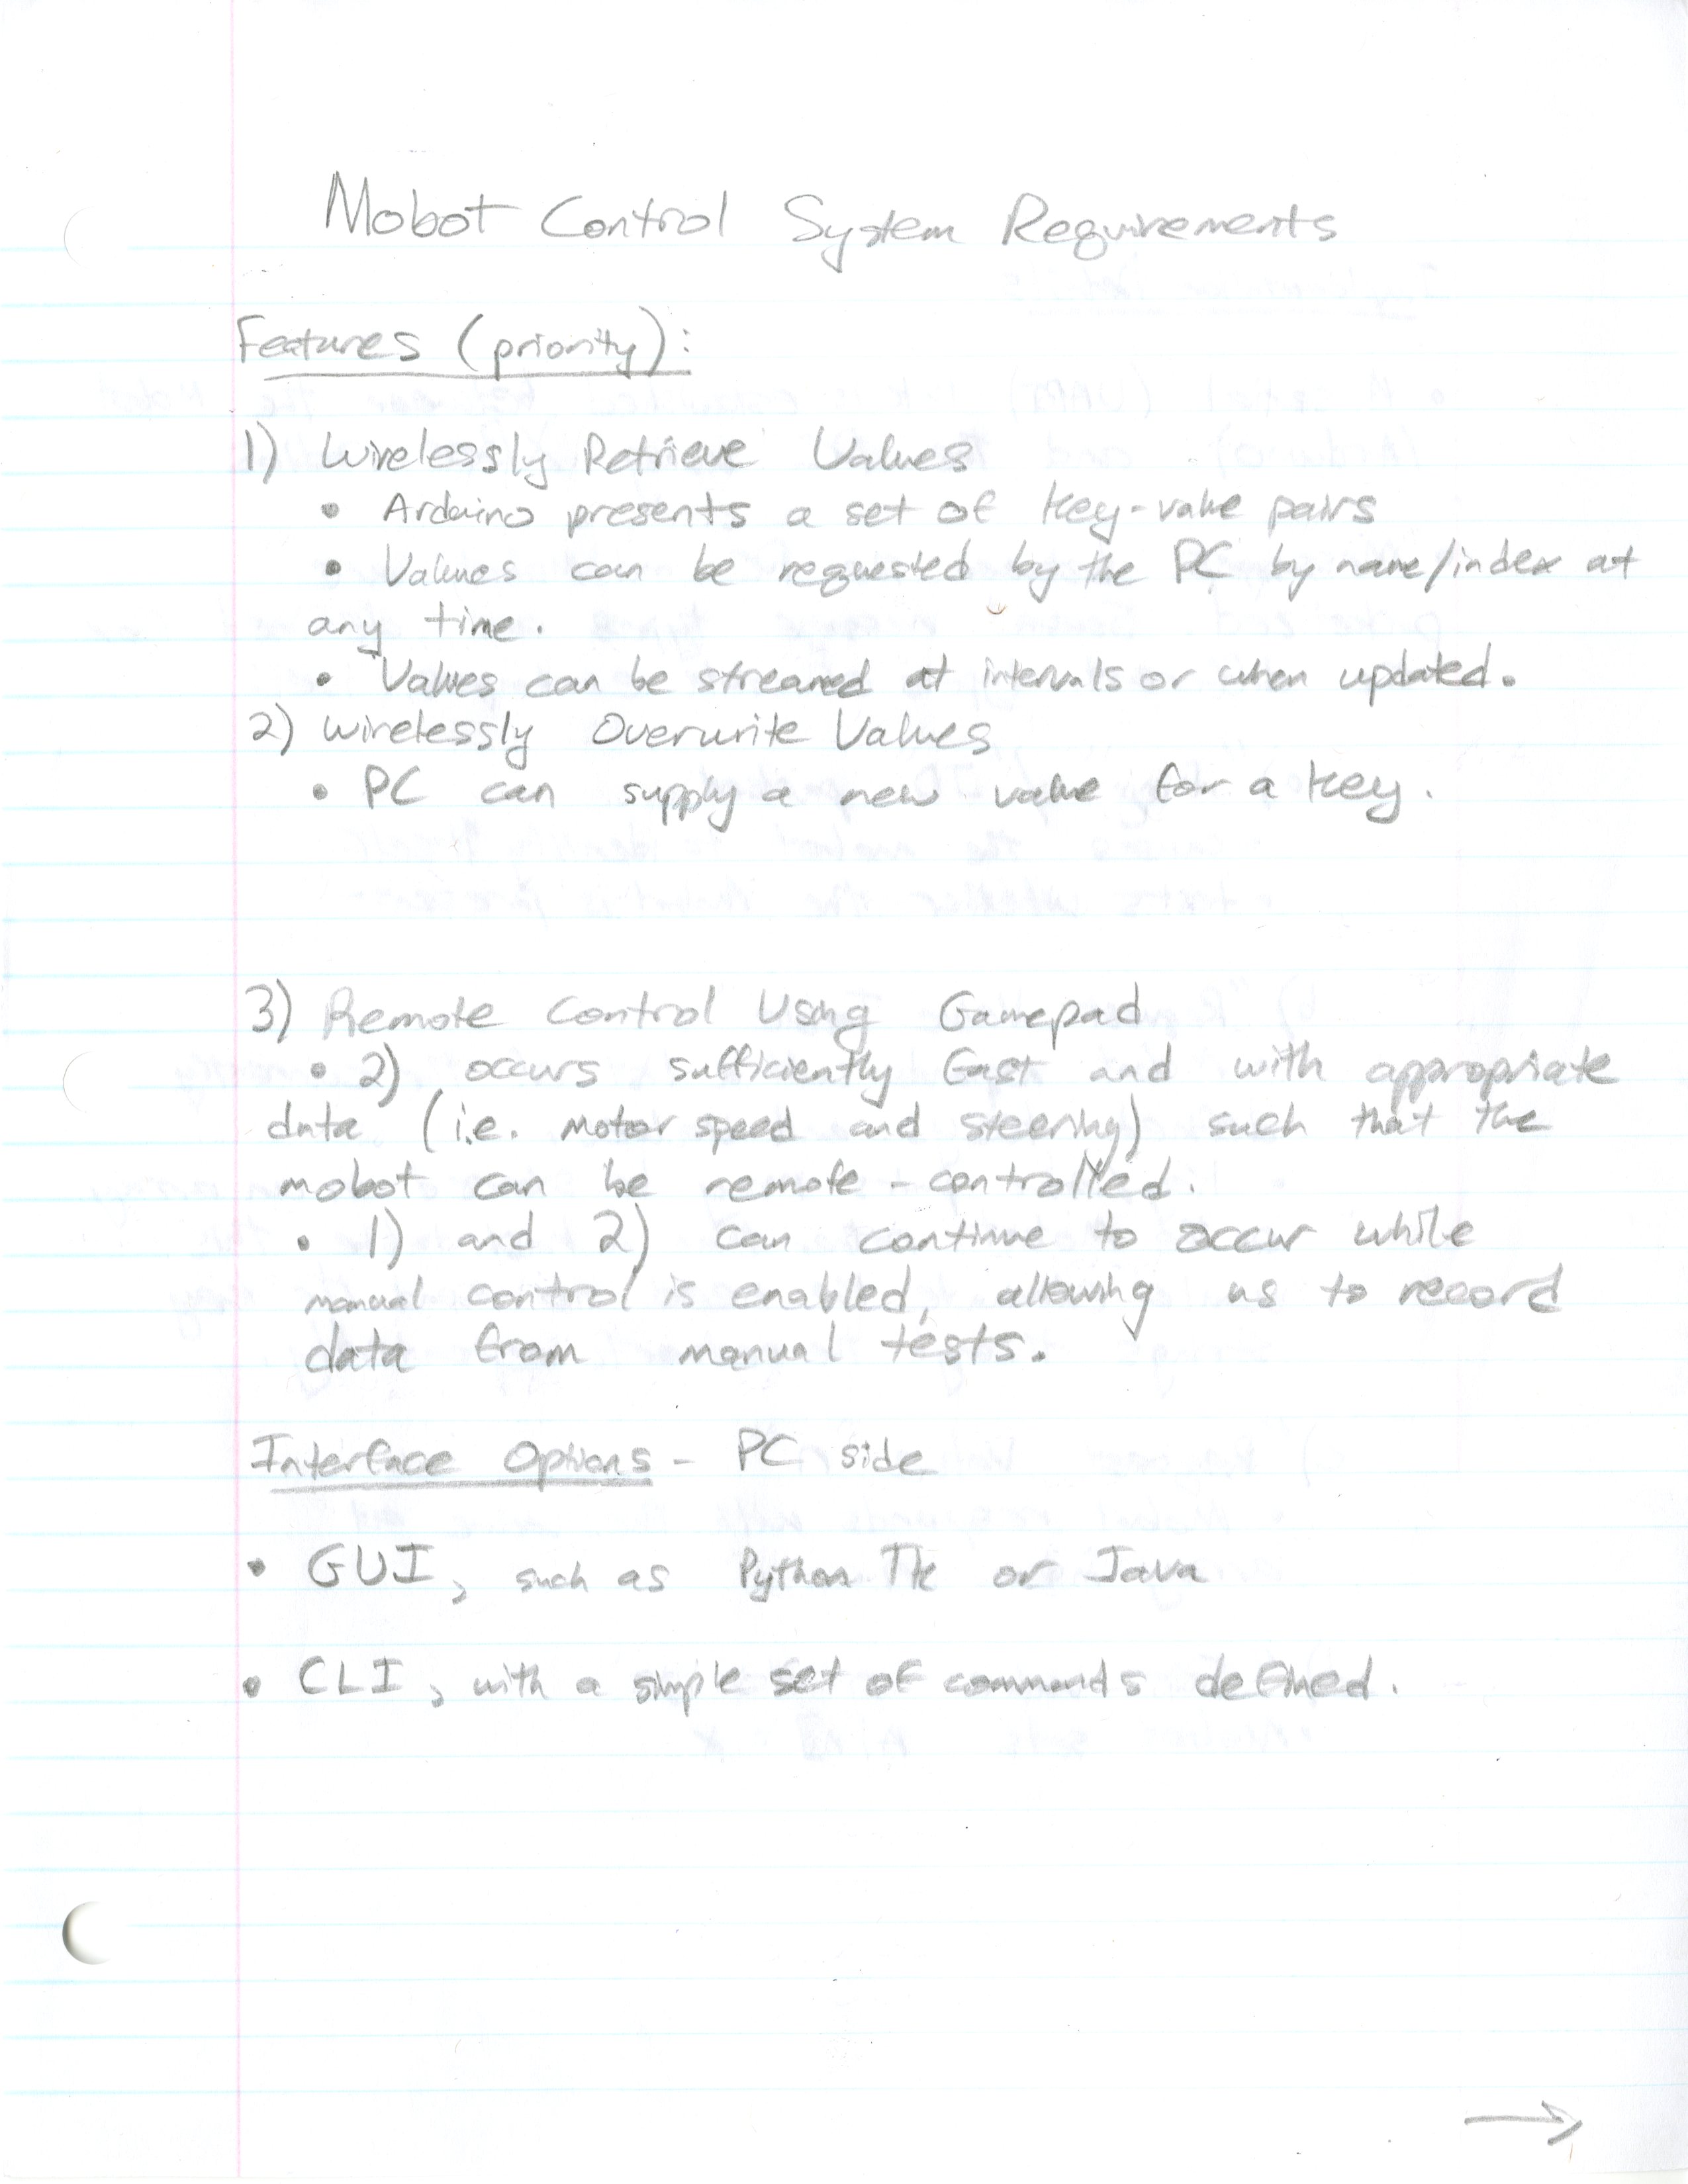 Mobot Control System Requirements
Features (priority):
1) Wirelessly Retrieve Values
• Arduino presents a set of key-value pairs
• Values can be requested by the PC by name/index at
any time.
• Values can be streamed at intervals or when updated.
2) Wirelessly Overwrite Values
• PC can supply a new value for a key.
3) Remote Control Using Gamepad
• 2) occurs sufficiently fast and with appropriate
data (i.e. motor speed and steering) such that the
mobot can be remote-controlled.
• 1) and 2) can continue to occur while
manual control is enabled, allowing us to record
data from manual tests.
Interface Options - PC side
• GUI, such as Python Tk or Java
• CLI, with a simple set of commands defined.
→